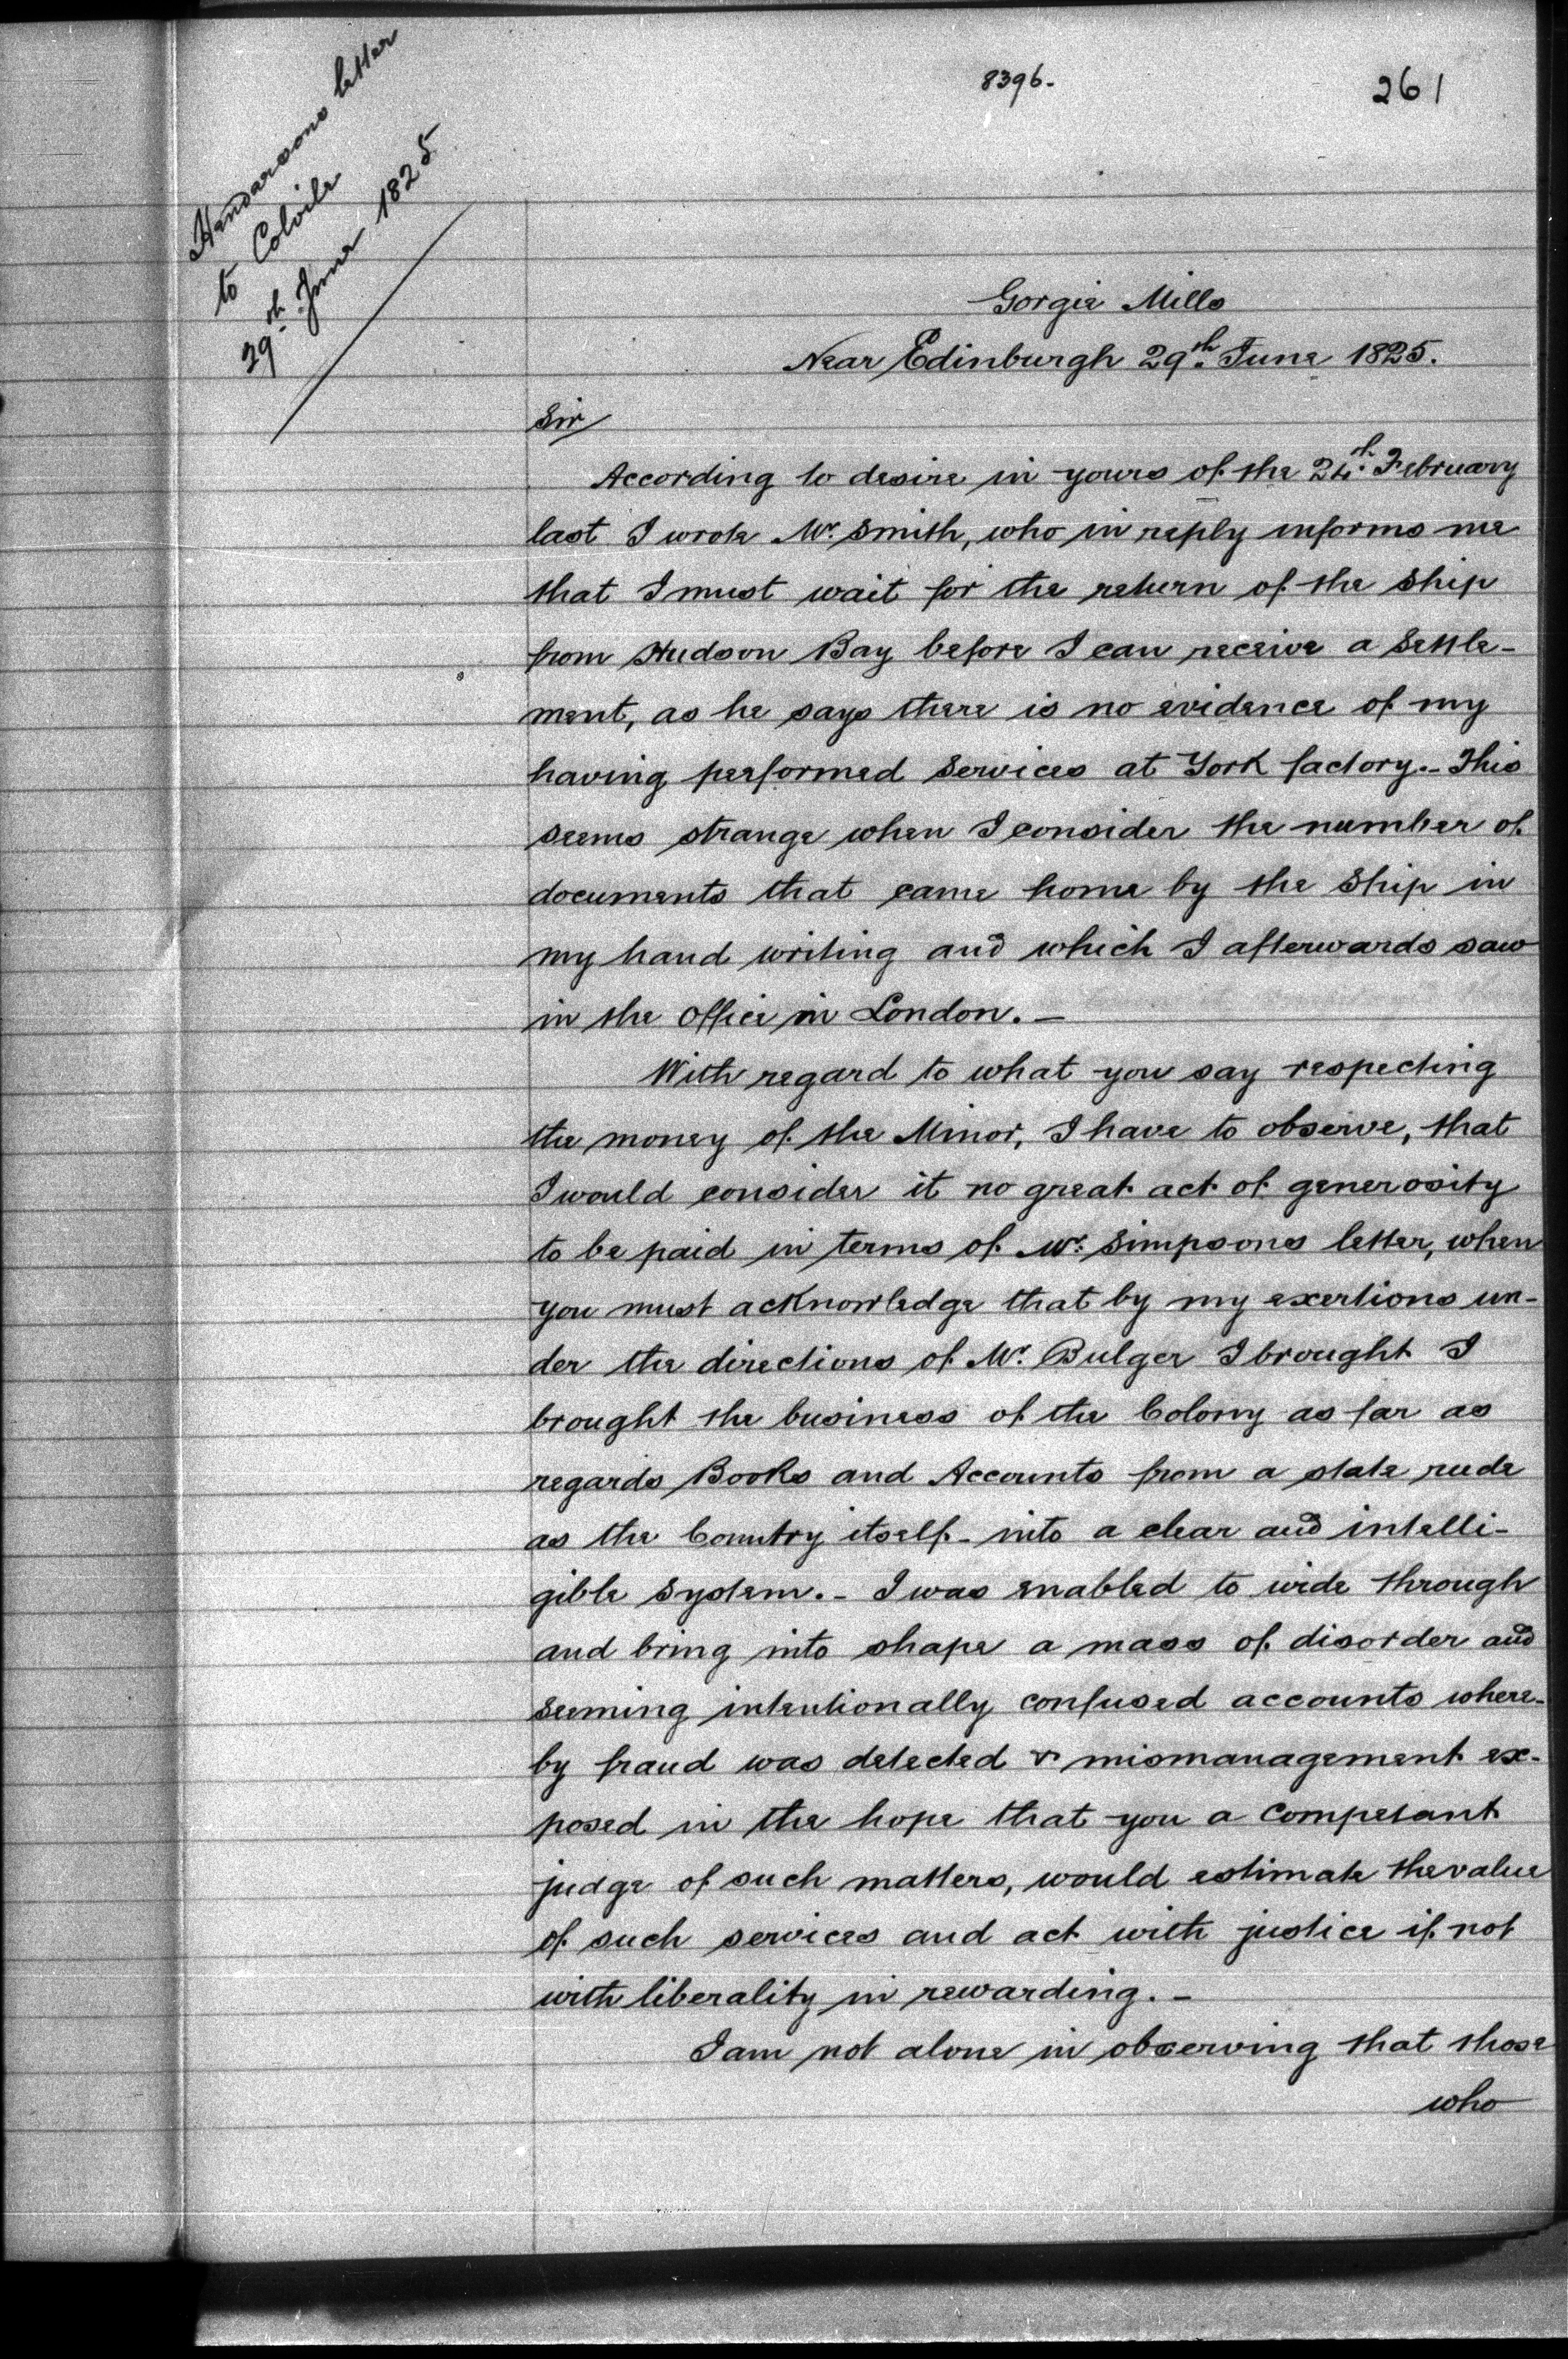 8396.
261
Hendersons letter
to Colvile
29th June 1825
Gorgie Mills
Near Edinburgh 29th June 1825.
Sir
According to desire in yours of the 24th February
last I wrote Mr. Smith, who in reply informs me
that I must wait for the return of the Ship
from Hudson Bay before I can receive a Settle-
ment, as he says there is no evidence of my
having performed Services at York factory._ This
seems strange when I consider the number of
documents that came home by the Ship in
my hand writing and which I afterwards saw
in the Office in London._
With regard to what you say respecting
the money of the Minor, I have to observe, that
I would consider it no great act of generosity
to be paid in terms of Mr. Simpsons letter, when
you must acknowledge that by my exertions un-
der the directions of Mr. Bulger I brought I
brought the business of the Colony as far as
regards Books and Accounts from a state rude
as the Country itself - into a clear and intelli-
gible System._ I was enabled to wide through
and bring into shape a mass of disorder and
seeming intentionally confused accounts where-
by fraud was detected & mismanagement ex-
posed in the hope that you a competant
judge of such matters, would estimate the value
of such services and act with justice if not
with liberality in rewarding._
I am not alone in observing that those
who